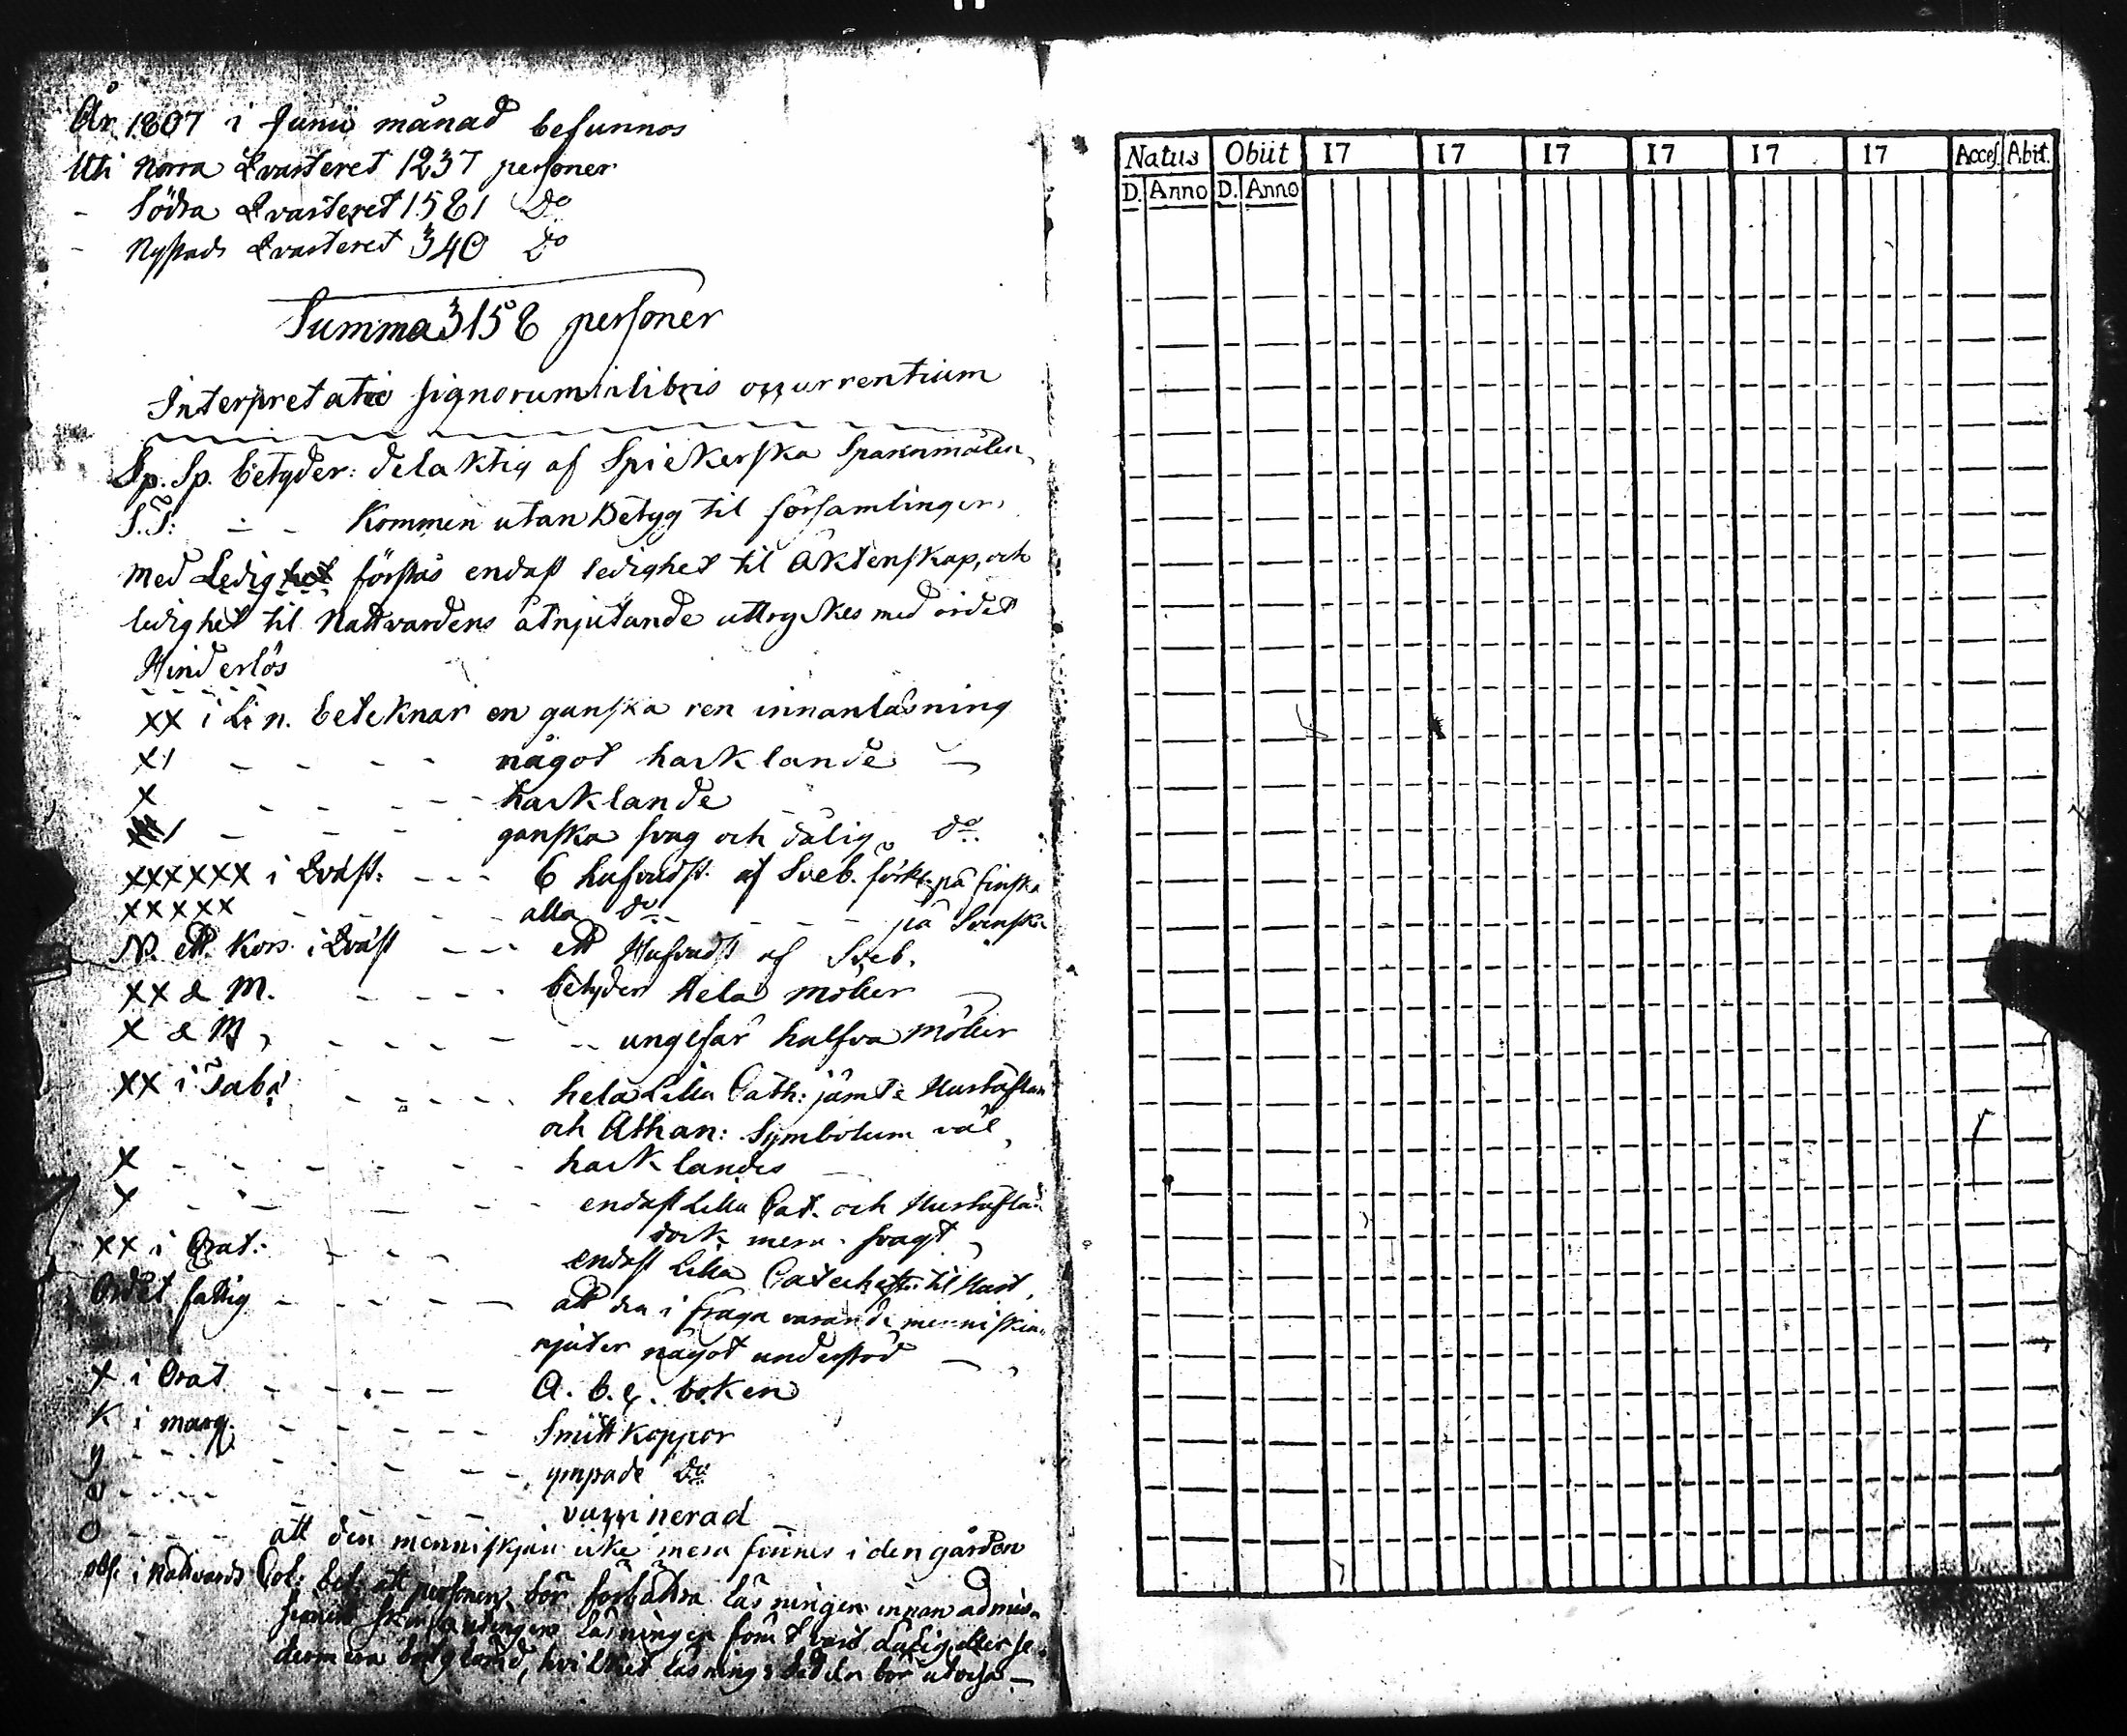 År 1807 i Junii månad befunnos
Uti Norra Qvarteret 1237 personer
- Södra Qvarteret 1581 Do
- Nystads Qvarteret 340 Do
Summa 3158 personer
Interpretatio signorum in libris occurrentium
Sp. Sp. betyder: delaktig af Spiekerska Spannmålen
S.T: - - Kommen utan Betyg til församlingen
Med Ledighet förstås endast ledighet til Äktenskap, och
ledighet til Nattvardens åtnjutande uttryckes med ordet
Hinderlös
xx i Lin. beteknar en ganska ren innanläsning
x1 - - - - något hacklande -
x - - - - hacklande
1 - - - ganska svag och dålig do.
xxxxxx i Qväst: - - - 6 hufvudst. af Sveb. förkl. på finska
xxxxx - - - - alla do - - - på Svenska
N. ett Kors i Qväst - - - ett Hufvudst af Sveb.
xx a M. - - - - betyder hela Möller
x a M, - - - - - ungefär halfva Möller
xx i Tab: - - - - - hela Lilla Cath: jämte Hustaflan
och Athan: Symbolum väl,
x - - - - - - - hacklandes
x - - - - - endast Lilla Cat. och Hustaflan
dock mera svagt
xx i Orat: - - - endast Lilla Cateches til Hust.
Ordet fattig - - - - - att den i fråga varande menniskian
njuter något understöd
x i Orat - - - - A. b. c. boken
K i marg. - - - - - Smittkoppor
y - - - - - - - ympade do
v - - - - vaccinerad
O - - - - att den menniskjan icke mera finnes i den gården
obs. i Nattvards Col: bet: att personen bör förbättra läsningen innan admis-
sionen sker antingen läsningen förut varit dålig eller se-
dermera bortglömd, hvilket läsningssedeln bör utvisa -
Natus Obiit 17 17 17 17 17 17 Acces. Abit.
D. Anno D. Anno